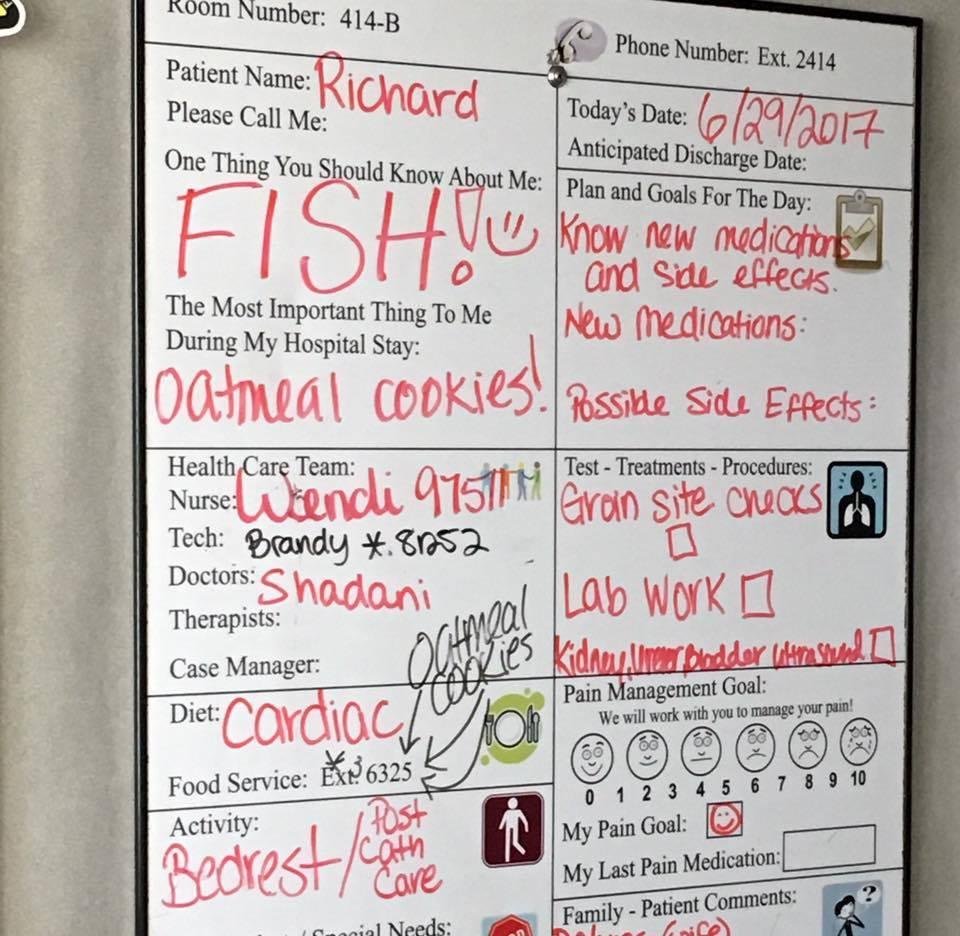 Room Number: 414-B
Phone Number: Ext. 2414
Patient Name: Richard
Please Call Me:
One Thing You Should Know About Me:
FISH!
The Most Important Thing To Me
During My Hospital Stay:
Oatmeal cookies!
Today's Date: 6/29/2017
Anticipated Discharge Date:
Plan and Goals For The Day:
Know new medications
and side effects.
New Medications:
Possible Side Effects:
Health Care Team:
Nurse: Wendi
Tech: Brandy *.8252
Doctors: Shadani
Therapists:
Case Manager:
Oatmeal
cookies
Diet: Cardiac
Food Service: Ext. 6325
Activity:
Bedrest/Post
Cath
Care
Special Needs:
Test - Treatments - Procedures:
Groin site checks
Lab Work
Kidney, Bladder Ultrasound
Pain Management Goal:
We will work with you to manage your pain!
0 1 2 3 4 5 6 7 8 9 10
My Pain Goal:
My Last Pain Medication:
Family - Patient Comments:
?